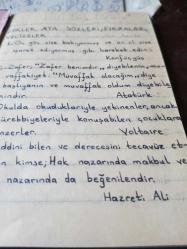 İKLER, ATA SÖZLERİ, FIKRALAR,
VECİZELER
Ön göz ise bakıyorsunuz ve
gibi hareket edin.
Konfüçyüs
Zafer, "Zafer benimdir" diyebilenin, mu
vaffakiyet "Muvaffak olacağım" diye
başlıyanın ve muvaffak oldum diyebile
nindir. Atatürk
Okulda okuduklariyle yetinenler, ancak
mürebbiyeleriyle konuşabilen çocuklara
benzerler. Voltaire
Haddini bilen ve derecesini tecavüz etm
kimse; Hak nazarında makbul ve
nazarında da beğenilendir.
Hazreti Ali